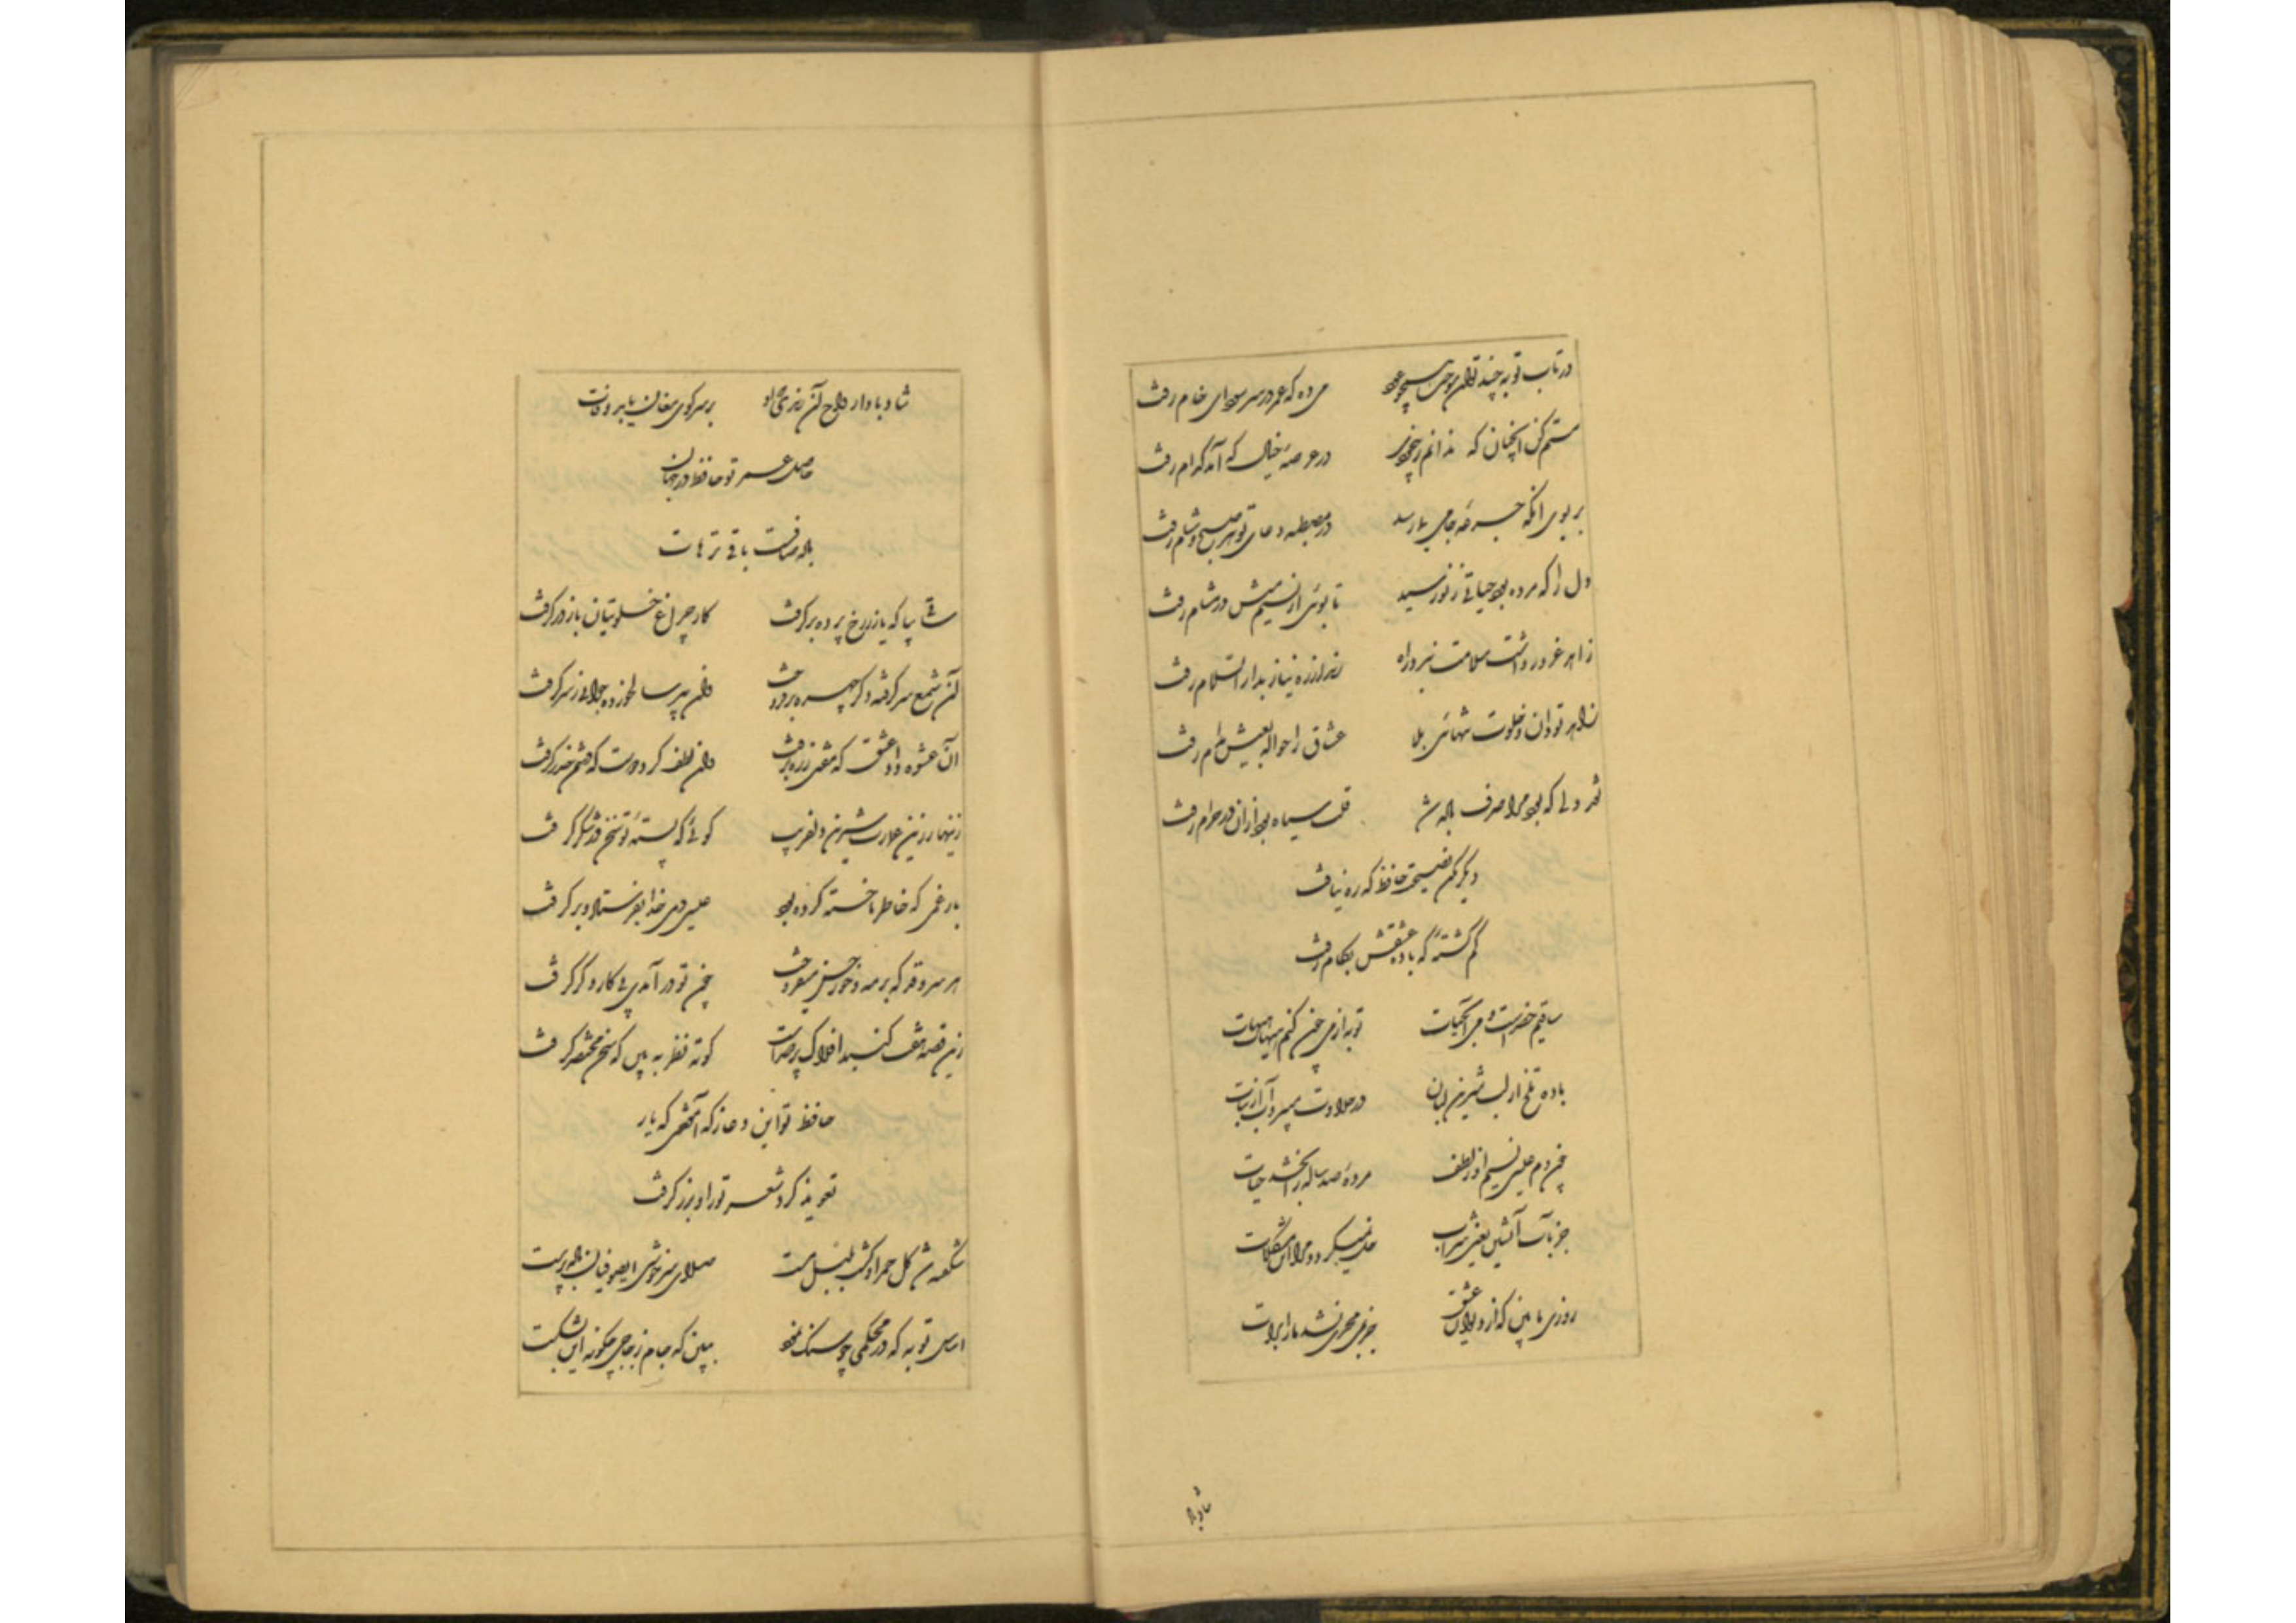 در تاب توبه چند توان سوخت همچو عود می ده که عمر در سر سودای خام رفت
مستم کن آنچنان که ندانم ز بیخودی در عرصهٔ خیال که آمد کدام رفت
بر بوی آنکه جرعهٔ جامی بما رسد در مصطبه دعای تو هر صبح و شام رفت
دل را که مرده بود حیاتی ز نو رسید تا بوئی از نسیم میش در مشام رفت
زاهد غرور داشت سلامت نبرد راه رند از ره نیاز بدار السلام رفت
زاهد تو دان و خلوت تنهائی بلا عشاق را حواله بعیش مدام رفت
نقد دلی که بود مرا صرف باده شد قلب سیاه بود از آن در حرام رفت
دیگر مکن نصیحت حافظ که ره نیافت
گم گشتهٔ که باده عشقش بکام رفت
ساقیم خضر است و می آبحیات توبه از می چون کنم هیهات هیهات
باده تلخ از لب شیرین لبان در حلاوت میبرد آب از نبات
چون دم عیسی نسیم او ز لطف مردهٔ صد ساله را بخشد حیات
جز به آب آتشین یعنی شراب حل نمیگردد مرا این مشکلات
روزی ما بین که از دیوان عشق جز می محرم نشد ما را برات
شاد با
شاد بادا روح آن رندی که او بر سر کوی مغان یابد وفات
حاصل عمر تو حافظ در جهان
باده صافست باقی ترهات
ساقی بیا که یار ز رخ پرده برگرفت کار چراغ خلوتیان باز در گرفت
آن شمع سر گرفته دگر چهره برفروخت وان پیر سالخورده جوانی ز سر گرفت
آن عشوه داد عشق که مفتی ز ره برفت وان لطف کرد دوست که دشمن حذر گرفت
زنهار زین عبارت شیرین و دلفریب گوئی که پستهٔ تو سخن در شکر گرفت
بار غمی که خاطر ما خسته کرده بود عیسی دمی خدا بفرستاد و برگرفت
هر سرو قد که بر مه و خور حسن میفروخت چون تو درآمدی پی کار دگر گرفت
زین قصه هفت گنبد افلاک پر صداست کوته نظر به بین که سخن مختصر گرفت
حافظ تو این دعا ز که آموختی که یار
تعویذ کرد شعر تو را و بزر گرفت
شکفته شد گل حمرا و گشت بلبل مست صلای سرخوشی ای صوفیان باده پرست
اساس توبه که در محکمی چو سنگ نمود ببین که جام زجاجی چگونه اش بشکست